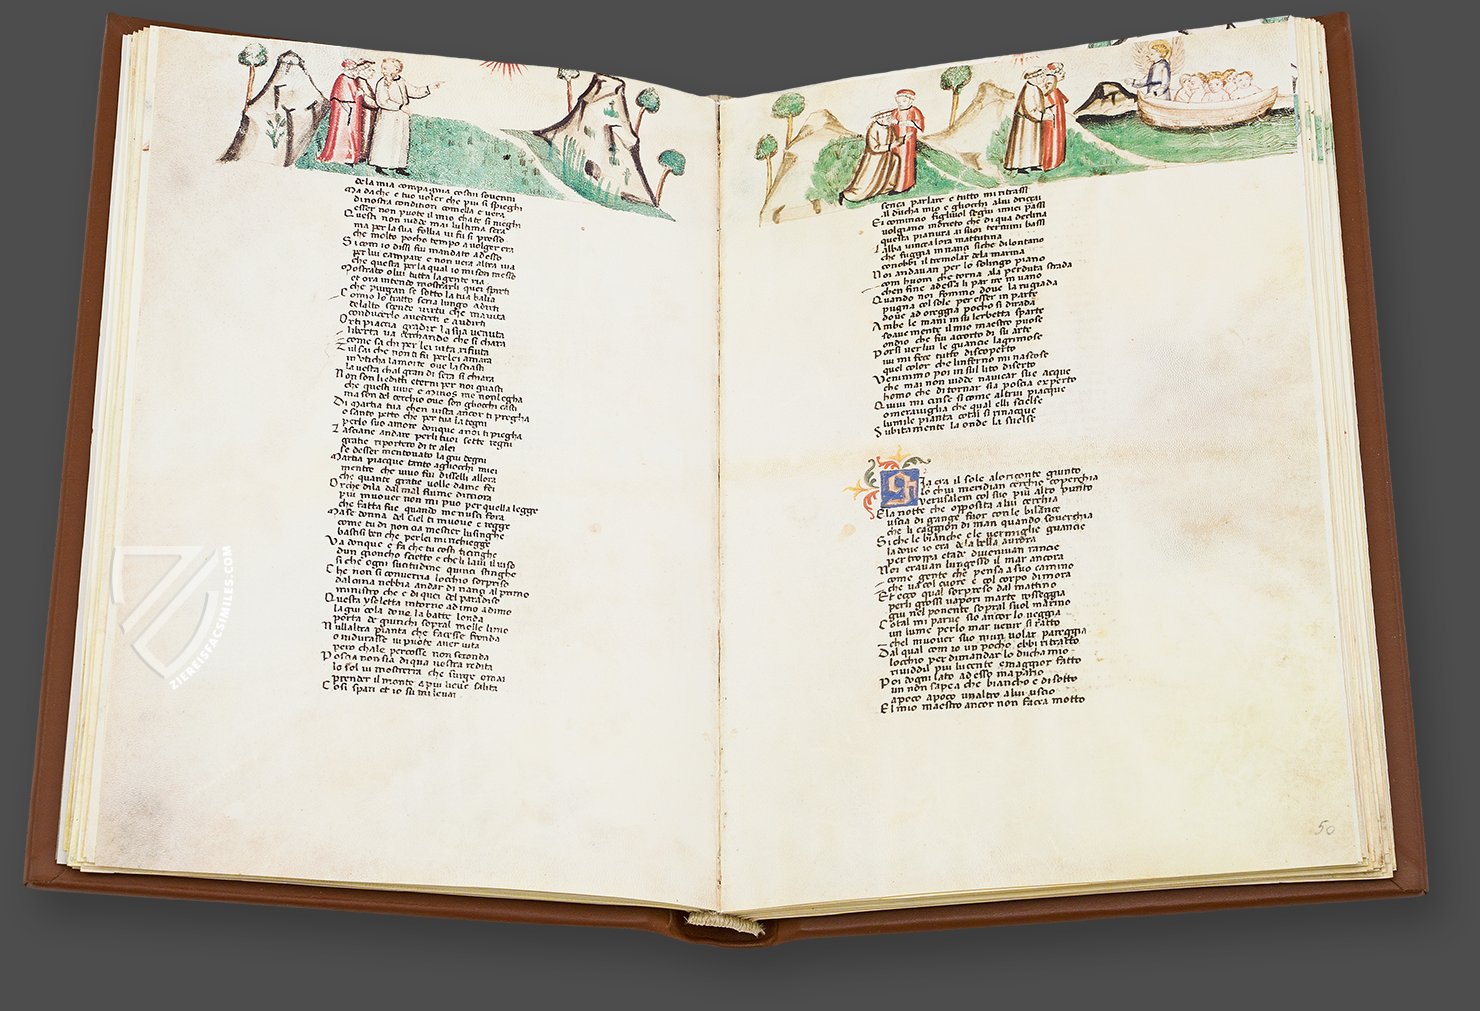 dela mia compagnia costui sovenni
Ma da che e tuo voler che piu si spieghi
di nostra condition comella e vera
esser non puote il mio cha te si nieghi
Questi non uidde mai lultima sera
ma per la sua follia ui fu si presso
che molto pocho tempo a uolger era
Si com io dissi fui mandato ad esso
per lui campare e non uera altra uia
che questa per la qual io mi son messo
Mostrato o lui tutta la gente ria
et ora intendo mostrarli quei spirti
che purgan se sotto la tua balia
Comio lo tratto seria lungo a dirti
delalto scende uirtu che maiuta
conducerlo auederti e audirti
Or ti piaccia gradir la sua uenuta
liberta ua cerchando che si chara
come sa chi per lei uita rifiuta
Tul sai che non ti fu per lei amara
in uticha la morte oue lasciasti
la uesta chal gran di sera si chara
Non son li editti eterni per noi guasti
che questi uiue e Minos me non legha
ma son del cerchio oue son gliocchi casti
Di Martia tua chen uista ancor ti pregha
o santo petto che per tua la tegni
per lo suo amore donque anoi ti piegha
Lasciane andare per li tuoi sette regni
gratie riportero di te alei
se desser mentouato la giu degni
Martia piacque tanto agliocchi miei
mentre che uiuo fui disselli allora
che quante gratie uolle da me fei
Or che dila dal mal fiume dimora
piu muouer non mi puo per quella legge
che fatta fue quando me nusci fora
Ma se donna del ciel ti muoue e regge
come tu di non cia mestier lusinghe
bastisi ben che per lei mi richiegge
Va donque e fa che tu costi ricinghe
dun gioncho scietto e che li laui il uiso
si che ogni sucitudine quinci stinghe
Che non si conuerria locchio sorpriso
dalcuna nebbia andar di nanci al primo
ministro che e di quei del paradiso
Questa ysoletta intorno ad imo ad imo
la giu cola doue la batte londa
porta de giunchi sopral molle limo
Nullaltra pianta che facesse fronda
o indurasse ui puote auer uita
pero chale percosse non seconda
Poscia non sia di qua uostra redita
lo sol ui mostrerra che surge ormai
prender il monte a piu lieue salita
Cosi spari et io su mi leuai
senca parlare e tutto mi ritrassi
al ducha mio e gliocchi alui driccai
El comincio figliuol segui imiei passi
volgianci indrieto che di qua declina
questa pianura ai suoi termini bassi
Lalba uincea lora mattutina
che fuggia innanci si che di lontano
conobbi il tremolar dela marina
Noi andauan per lo solingo piano
com huom che torna ala perduta strada
chen fine adessa li par ire in uano
Quando noi fommo doue la rugiada
pugna col sole per esser in parte
doue ad oreggia pocho si dirada
Ambe le mani in su lerbetta sparte
soauemente il mio maestro puose
ondio che fui accorto di su arte
Porsi uer lui le guancie lagrimose
iui mi fece tutto discoperto
quel color che linferno mi nascose
Venimmo poi in sul lito diserto
che mai non uidde nauicar sue acque
homo che di tornar sia poscia experto
Quiui mi cinse si come altrui piacque
o merauiglia che qual elli scielse
lumile pianta cotal si rinacque
Subitamente la onde la suelse
Gia era il sole aloriconte giunto
lo chui meridian cerchio coperchia
yerusalem col suo piu alto punto
E la notte che opposita alui cerchia
uscia di gange fuor con le bilance
che li caggion di man quando souerchia
Si che le bianche e le vermiglie guancie
la doue io era dela bella aurora
per troppa etade diuenuian rancie
Noi erauan lunghesso il mar ancora
come gente che pensa a suo camino
che ua col cuore e col corpo dimora
Et ecco qual sorpreso dal mattino
per li grossi uapori marte rosseggia
giu nel ponente sopral suol marino
Cotal mi parue sio ancor lo veggia
un lume per lo mar venir si ratto
chel muouer suo niun volar pareggia
Dal qual com io un pocho ebbi ritratto
locchio per dimandar lo ducha mio
riuiddil piu lucente e maggior fatto
Poi dogni lato ad esso mapario
un non sapea che biancho e di sotto
apoco apoco unaltro alui uscio
El mio maestro ancor non faccea motto
50
ZIEREISFACSIMILES.COM